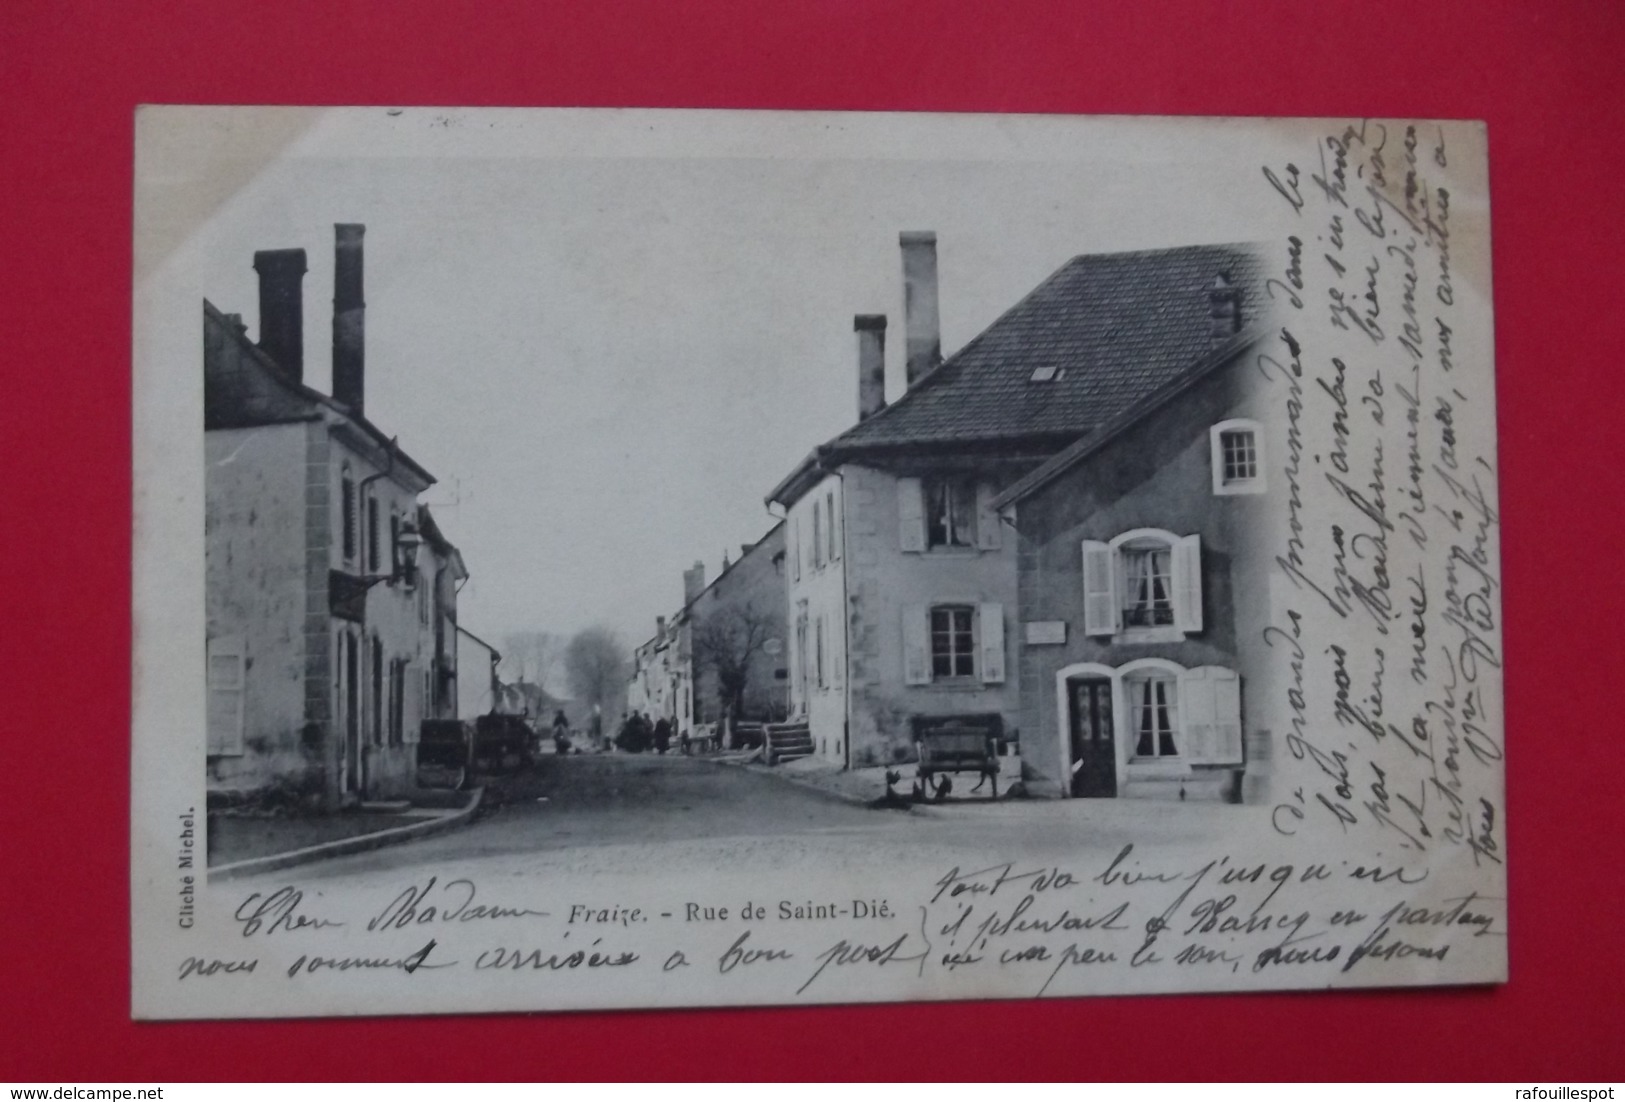 Cliché Michel.
Fraize. - Rue de Saint-Dié.
Chère Madame
nous sommes arrivées a bon port
tout va bien j'usqu'ici
il pleuvait a en partant
ici un peu le soir, nous fesons
de grandes promenades dans les
bois, mais mes jambes ne s'en trouve
pas bien Madame va bien
et la mère viennent samedi nous
retrouver pour jours, nos amitiés a
tous Vve
delcampe.net
rafouillespot